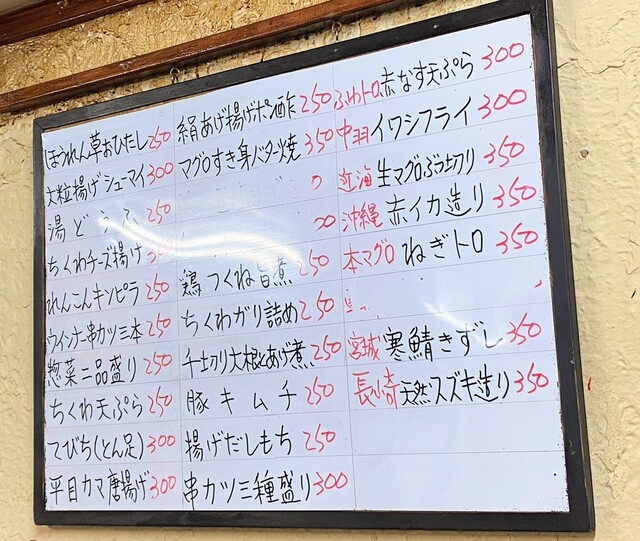 ほうれん草おひたし 250
大粒揚げシューマイ 300
湯どうふ 250
ちくわチーズ揚げ 300
れんこんキンピラ 250
ウインナー串カツ三本 250
惣菜二品盛り 250
ちくわ天ぷら 250
てびち(とん足) 300
平目カマ唐揚げ 300
絹あげ揚げポン酢 250
マグロすき身バター焼 350
鶏つくね旨煮 250
ちくわがり詰め 250
千切り大根とあげ煮 250
豚キムチ 250
揚げだしもち 250
串カツ三種盛り 300
ふわトロ赤なす天ぷら 300
中羽イワシフライ 300
近海生マグロぶつ切り 350
沖縄赤イカ造り 350
本マグロねぎトロ 350
宮城寒鯖きずし 350
長崎天然スズキ造り 350